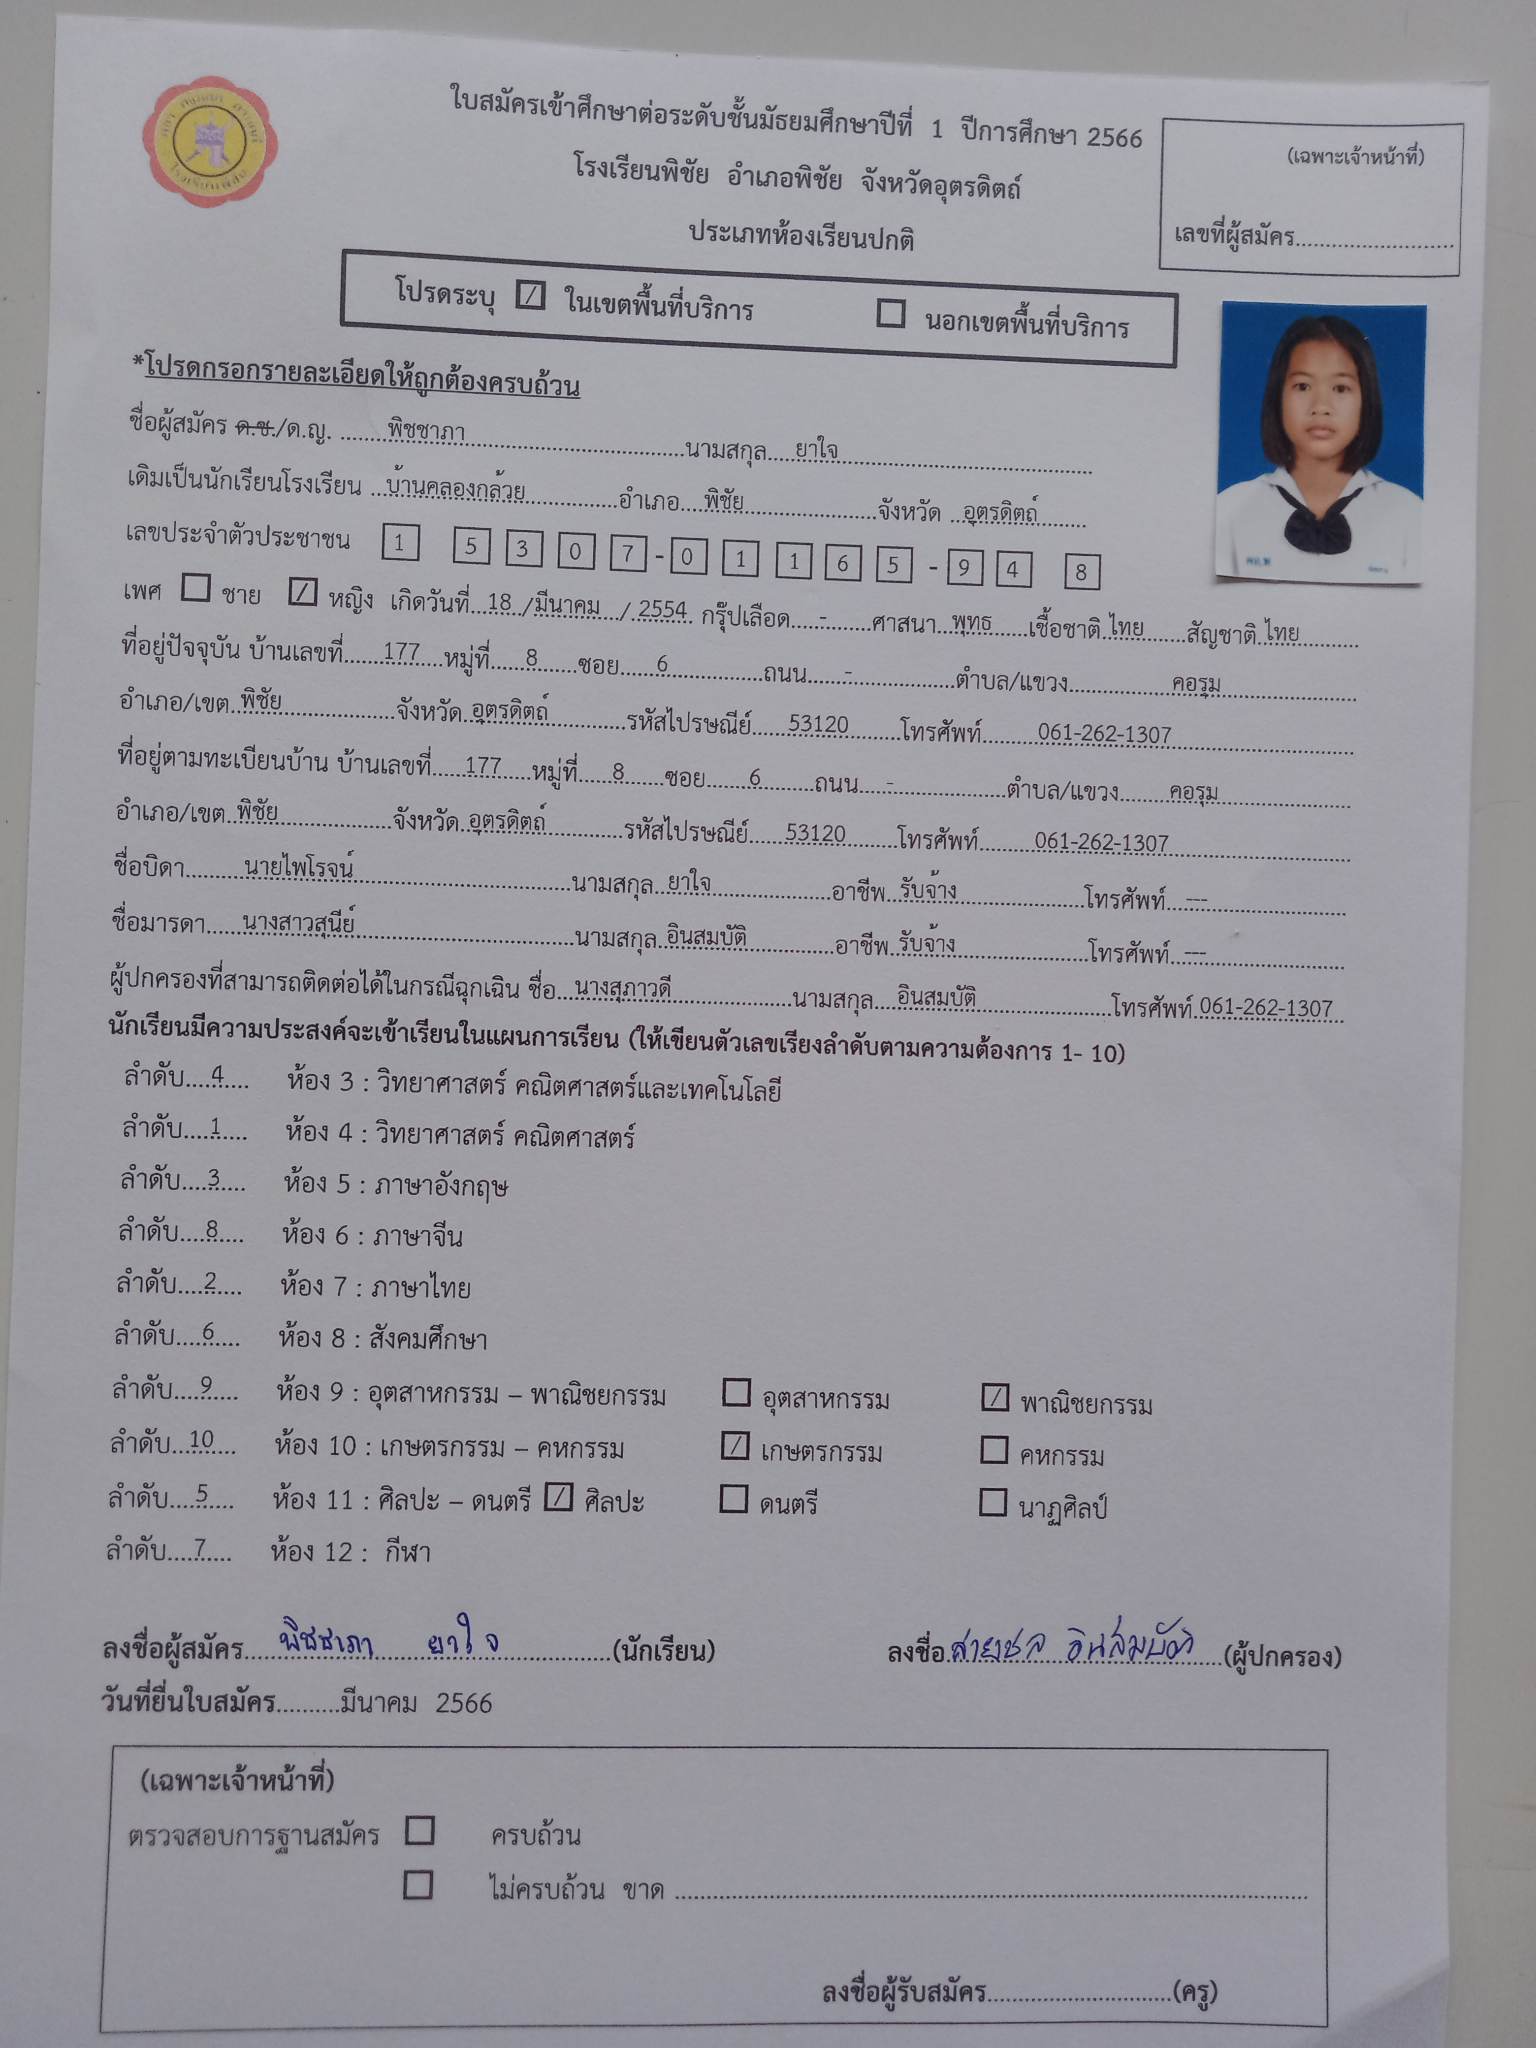 ใบสมัครเข้าศึกษาต่อระดับชั้นมัธยมศึกษาปีที่ 1 ปีการศึกษา 2566
(เฉพาะเจ้าหน้าที่)
โรงเรียนพิชัย อำเภอพิชัย จังหวัดอุตรดิตถ์
เลขที่ผู้สมัคร..........................
ประเภทห้องเรียนปกติ
โปรดระบุ ☑ ในเขตพื้นที่บริการ ☐ นอกเขตพื้นที่บริการ
*โปรดกรอกรายละเอียดให้ถูกต้องครบถ้วน
ชื่อผู้สมัคร ด.ช./ด.ญ. ........พิชชาภา........นามสกุล.....ยาใจ........
เดิมเป็นนักเรียนโรงเรียน ...บ้านคลองกล้วย........อำเภอ....พิชัย........จังหวัด ...อุตรดิตถ์........
เลขประจำตัวประชาชน 1 5 3 0 7 - 0 1 1 6 5 - 9 4 8
เพศ ☐ ชาย ☑ หญิง เกิดวันที่...18.../มีนาคม.../.2554. กรุ๊ปเลือด.....-.......ศาสนา..พุทธ......เชื้อชาติ.ไทย.......สัญชาติ.ไทย........
ที่อยู่ปัจจุบัน บ้านเลขที่......177....หมู่ที่......8......ซอย......6........ถนน......-........ตำบล/แขวง........คอรุม........
อำเภอ/เขต.พิชัย........จังหวัด.อุตรดิตถ์........รหัสไปรษณีย์......53120........โทรศัพท์........061-262-1307........
ที่อยู่ตามทะเบียนบ้าน บ้านเลขที่.....177.....หมู่ที่.....8......ซอย.......6........ถนน....-........ตำบล/แขวง........คอรุม........
อำเภอ/เขต.พิชัย........จังหวัด.อุตรดิตถ์........รหัสไปรษณีย์......53120........โทรศัพท์........061-262-1307........
ชื่อบิดา........นายไพโรจน์........นามสกุล..ยาใจ........อาชีพ..รับจ้าง........โทรศัพท์...---........
ชื่อมารดา......นางสาวสุนีย์........นามสกุล.อินสมบัติ........อาชีพ..รับจ้าง........โทรศัพท์..---........
ผู้ปกครองที่สามารถติดต่อได้ในกรณีฉุกเฉิน ชื่อ...นางสุภาวดี........นามสกุล....อินสมบัติ........โทรศัพท์.061-262-1307..
นักเรียนมีความประสงค์จะเข้าเรียนในแผนการเรียน (ให้เขียนตัวเลขเรียงลำดับตามความต้องการ 1- 10)
ลำดับ....4..... ห้อง 3 : วิทยาศาสตร์ คณิตศาสตร์และเทคโนโลยี
ลำดับ....1..... ห้อง 4 : วิทยาศาสตร์ คณิตศาสตร์
ลำดับ....3..... ห้อง 5 : ภาษาอังกฤษ
ลำดับ....8..... ห้อง 6 : ภาษาจีน
ลำดับ....2..... ห้อง 7 : ภาษาไทย
ลำดับ....6..... ห้อง 8 : สังคมศึกษา
ลำดับ....9..... ห้อง 9 : อุตสาหกรรม – พาณิชยกรรม ☐ อุตสาหกรรม ☑ พาณิชยกรรม
ลำดับ...10.... ห้อง 10 : เกษตรกรรม – คหกรรม ☑ เกษตรกรรม ☐ คหกรรม
ลำดับ....5..... ห้อง 11 : ศิลปะ – ดนตรี ☑ ศิลปะ ☐ ดนตรี ☐ นาฏศิลป์
ลำดับ....7..... ห้อง 12 : กีฬา
ลงชื่อผู้สมัคร.....พิชชาภา ยาใจ........(นักเรียน) ลงชื่อ.สายชล อินสมบัติ....(ผู้ปกครอง)
วันที่ยื่นใบสมัคร..........มีนาคม 2566
(เฉพาะเจ้าหน้าที่)
ตรวจสอบการฐานสมัคร ☐ ครบถ้วน
☐ ไม่ครบถ้วน ขาด ........................................
ลงชื่อผู้รับสมัคร..............................(ครู)